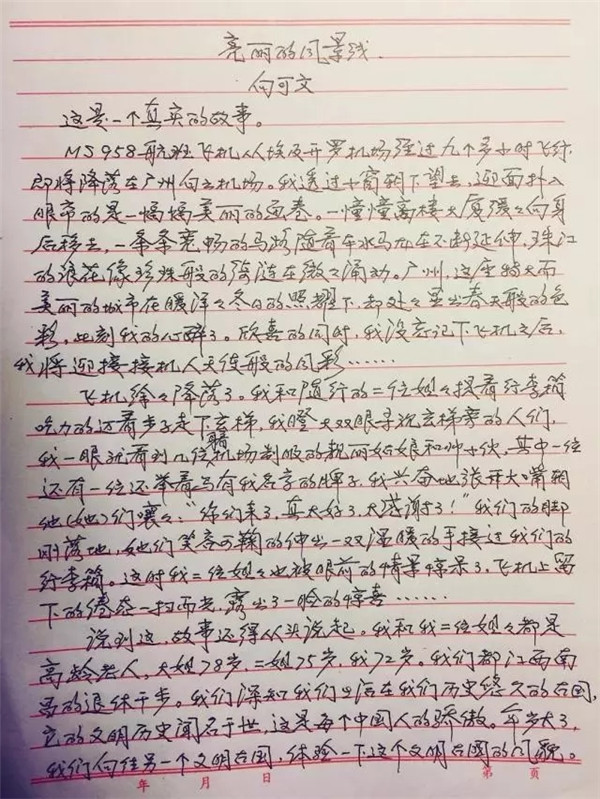 亮丽的风景线
向可文
这是一个真实的故事。
MS958航班飞机从埃及开罗机场经过九个多小时飞行,
即将降落在广州白云机场。我透过小窗朝下望去,迎面扑入
眼帘的是一幅幅美丽的画卷。一幢幢高楼大厦缓々向身
后移去,一条条宽畅的马路随着车水马龙在不断延伸,珠江
的浪花像珍珠般的涟在微々涌动。广州,这座特大而
美丽的城市在暖洋々冬日的照耀下,却处々呈出春天般的色
彩,此刻我的心醉了。欣喜的同时,我没忘记下飞机之后,
我将迎接接机人天使般的风彩……
飞机徐々降落了。我和随行的二位姐々提着行李箱
吃力的迈着步子走下玄梯,我瞪大双眼寻视玄梯旁的人们,
我一眼就看到几位着机场制服的靓丽姑娘和帅小伙,其中一位
还有一位还举着写有我名字的牌子,我兴奋地张开大嘴朝
他(她)们嚷々:“你们来了,真太好了,太感谢了!”我们的脚
刚落地,她们笑容可鞠的伸出一双温暖的手接过我们的
行李箱。这时我二位姐々也被眼前的情景惊呆了,飞机上留
下的倦态一扫而光,露出了一脸的惊喜……
说到这,故事还得从头说起。我和我二位姐々都是
高龄老人,大姐78岁,二姐75岁,我72岁。我们都江西南
昌的退休干部。我们深知我们生活在我们历史悠久的古国,
它的文明历史闻名于世,这是每个中国人的骄傲。年岁大了,
我们向往另一个文明古国,体验一下这个文明古国的风貌。
年 月 日 第 页